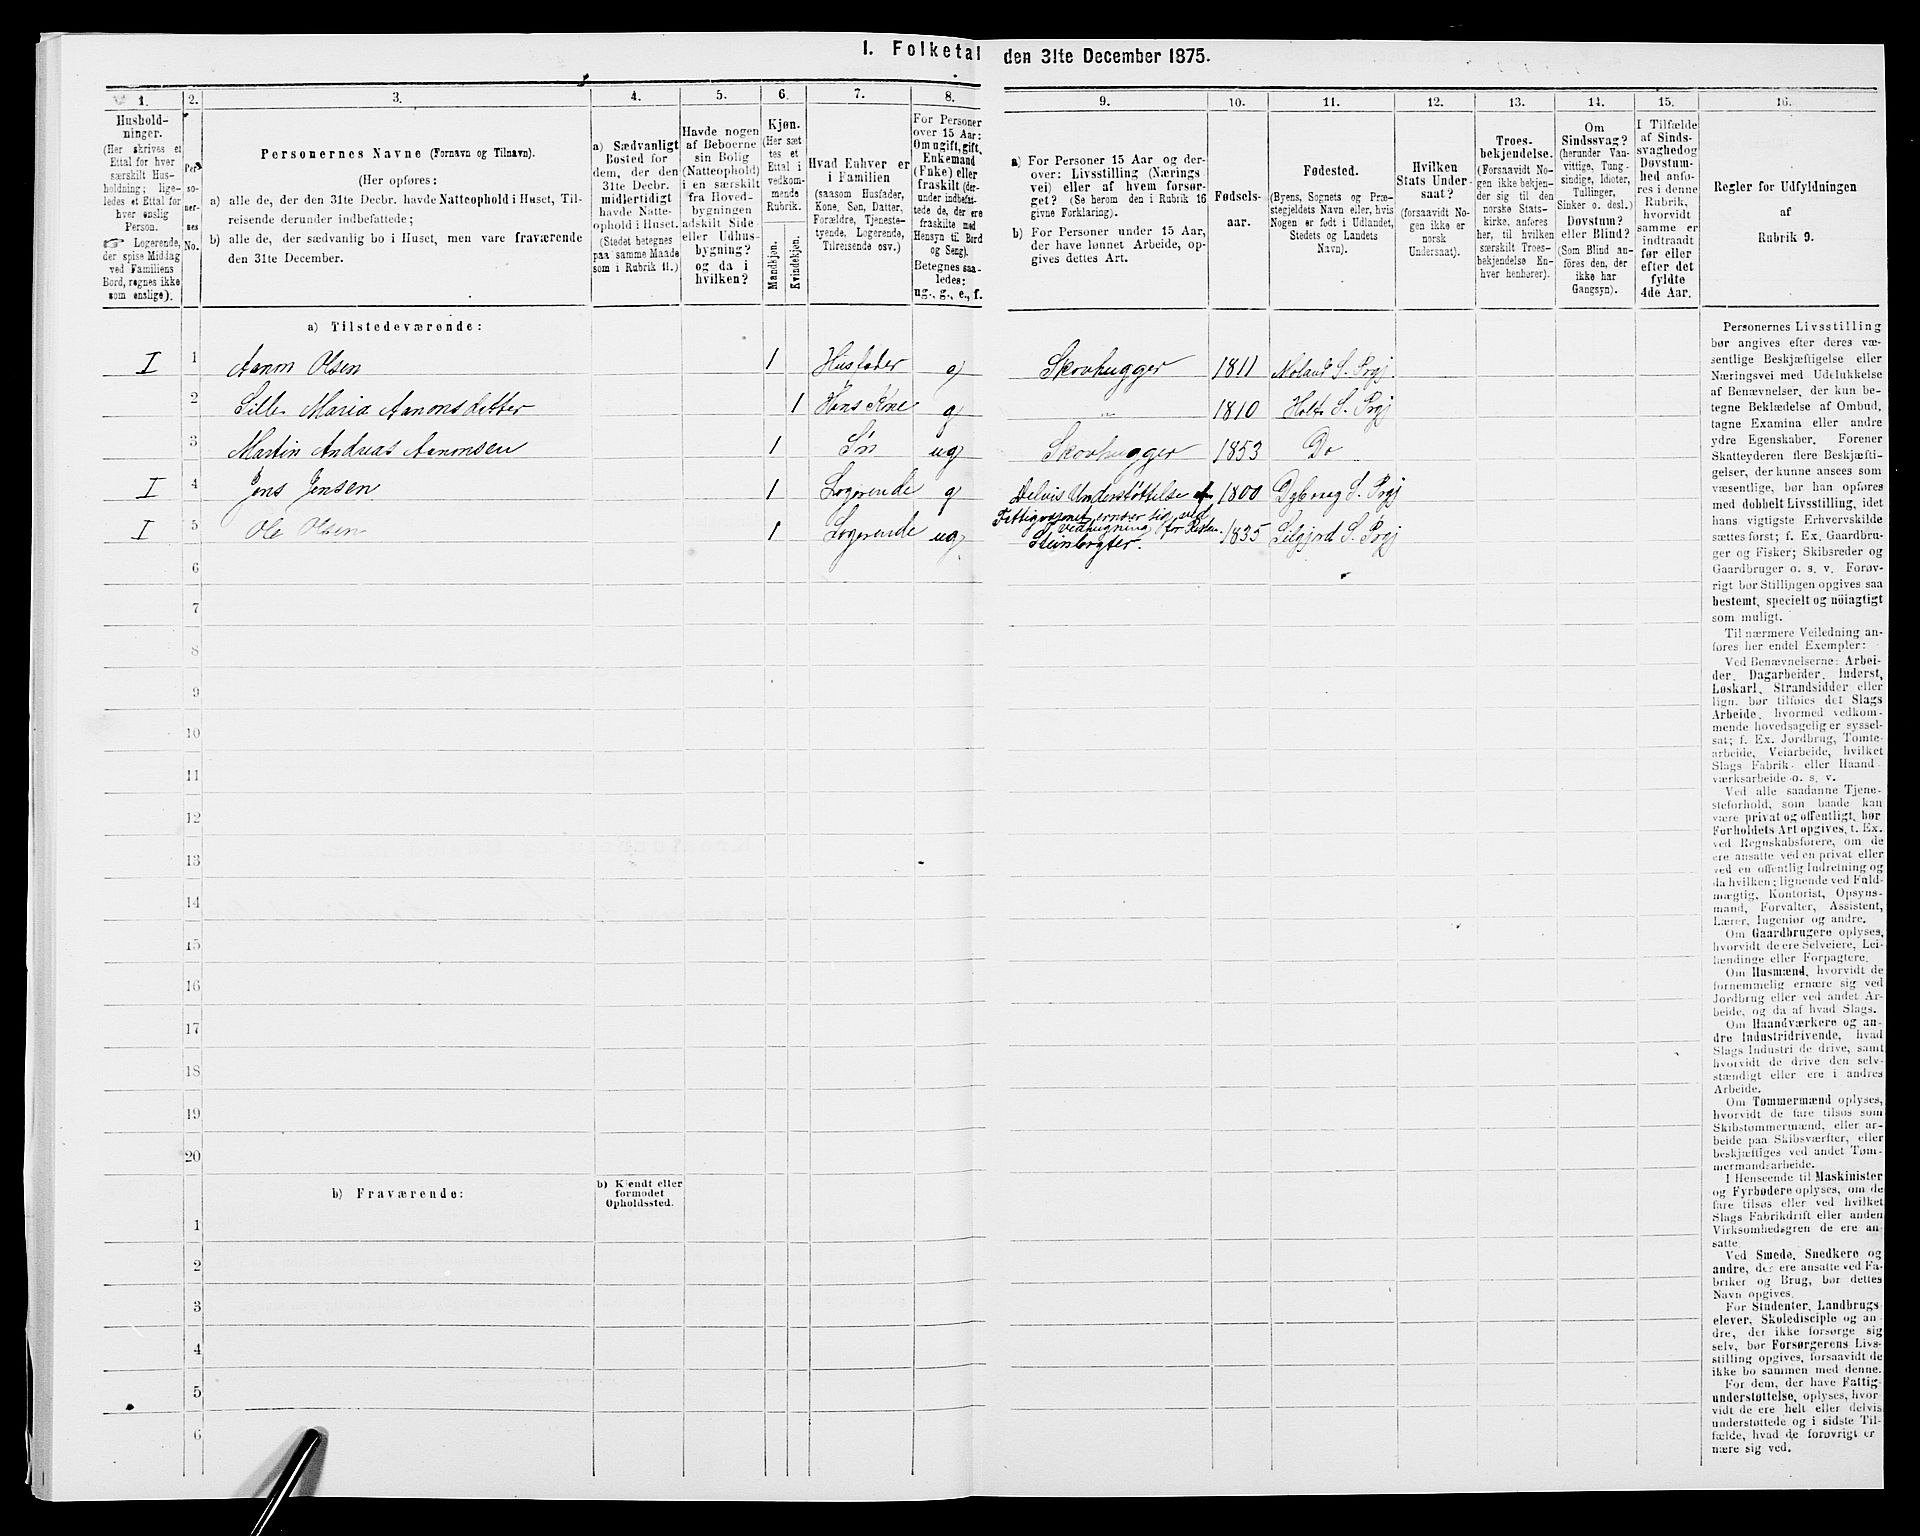 I. Folketal den 31te December 1875.
1. 2. 3. 4. 5. 6. 7. 8. 9. 10. 11. 12. 13. 14. 15. 16.
Hushold-
ninger.
(Her skrives et
Ettal for hver
særskilt Hus-
holdning; lige-
ledes et Ettal for
hver enslig
Person.
☞ Logerende,
der spise Middag
ved Familiens
Bord, regnes ikke
som enslige).
Per-
so-
ner-
nes
No.
Personernes Navne (Fornavn og Tilnavn).
(Her opføres:
a) alle de, der den 31te Decbr. havde Natteophold i Huset, Til-
reisende derunder indbefattede;
b) alle de, der sædvanlig bo i Huset, men vare fraværende
den 31te December.
a) Sædvanligt
Bosted for
dem, der den
31te Decbr.
midlertidigt
havde Natte-
ophold i Huset.
(Stedet betegnes
paa samme Maade
som i Rubrik 11.)
Havde nogen
af Beboerne
sin Bolig
(Natteophold)
i en særskilt
fra Hoved-
bygningen
adskilt Side
eller Udhus-
bygning?
og da i
hvilken?
Kjøn.
(Her sæt-
tes et
Ettal i
vedkom-
mende
Rubrik.
Mandkjøn.
Kvindekjøn.
Hvad Enhver er
i Familien
(saasom Husfader,
Kone, Søn, Datter,
Forældre, Tjeneste-
tyende, Logerende,
Tilreisende osv.)
For Personer
over 15 Aar:
Om ugift, gift,
Enkemand
(Enke) eller
fraskilt (der-
under indbefat-
tede de, der ere
fraskilte med
Hensyn til Bord
og Seng).
Betegnes saa-
ledes:
ug., g., e., f.
a) For Personer 15 Aar og der-
over: Livsstilling (Nærings-
vei) eller af hvem forsør-
get? (Se herom den i Rubrik 16
givne Forklaring).
b) For Personer under 15 Aar,
der have lønnet Arbeide, op-
gives dettes Art.
Fødsels-
aar.
Fødested.
(Byens, Sognets og Præ-
stegjeldets Navn eller, hvis
Nogen er født i Udlandet,
Stedets og Landets
Navn).
Hvilken
Stats Under-
saat?
(forsaavidt No-
gen ikke er
norsk
Undersaat).
Troes-
bekjendelse.
(Forsaavidt No-
gen ikke bekjen-
der sig til den
norske Stats-
kirke, anføres
her, til hvilken
særskilt Troes-
bekjendelse En-
hver henhører).
Om
Sindssvag?
(herunder Van-
vittige, Tung-
sindige, Idioter,
Tullinger,
Sinker o. desl.)
Døvstum?
eller Blind?
(Som Blind an-
føres den, der
ikke har
Gangsyn).
I Tilfælde
af Sinds-
svaghed og
Døvstum-
hed anfø-
res i denne
Rubrik,
hvorvidt
samme er
indtraadt
før eller
efter det
fyldte
4de Aar.
Regler for Udfyldningen
af
Rubrik 9.
a) Tilstedeværende:
I 1 Aanon Olsen 1 Husfader g Skovhugger 1811 Moland S. Prgj.
2 Sille Maria Aanonsdatter 1 Hans Kone g " 1810 Holt S. Prgj
3 Martin Andreas Aanonsen 1 Søn ug Skovhugger 1853 Do
I 4 Jens Jensen 1 Logerende g Delvis Understøttelse af 1800 Dybvaag S. Prgj
Fattigvæsnet, ernærer sig ved
Vedhugning for Resten.
I 5 Ole Olsen 1 Logerende ug 1835 S. Prgj
6
7
8
9
10
11
12
13
14
15
16
17
18
19
20
b) Fraværende:
b) Kjendt eller
formodet
Opholdssted.
1
2
3
4
5
6
Personernes Livsstilling
bør angives efter deres væ-
sentlige Beskjæftigelse eller
Næringsvei med Udelukkelse
af Benævnelser, der kun be-
tegne Beklædelse af Ombud,
tagne Examina eller andre
ydre Egenskaber. Forener
Skatteyderen flere Beskjæfti-
gelser, der kunne ansees som
væsentlige, bør han opføres
med dobbelt Livsstilling, idet
hans vigtigste Erhvervskilde
sættes først; f. Ex. Gaardbru-
ger og Fisker; Skibsreder og
Gaardbruger o. s. v. Forøv-
rigt bør Stillingen opgives saa
bestemt, specielt og nöiagtigt
som muligt.
Til nærmere Veiledning an-
føres her endel Exempler:
Ved Benævnelserne: Arbei-
der, Dagarbeider, Inderst,
Løskarl, Strandsidder eller
lign. bør tilføies det Slags
Arbeide, hvormed vedkom-
mende hovedsagelig er syssel-
sat; f. Ex. Jordbrug, Tomte-
arbeide, Veiarbeide, hvilket
Slags Fabrik- eller Haand-
værksarbeide o. s. v.
Ved alle saadanne Tjene-
steforhold, som baade kan
være privat og offentligt, bør
Forholdets Art opgives, t. Ex.
ved Regnskabsførere, om de
ere ansatte ved en privat eller
ved en offentlig Indretning og
da hvilken; lignende ved Fuld-
mægtig, Kontorist, Opsyns-
mand, Forvalter, Assistent,
Lærer, Ingeniør og andre.
Om Gaardbrugere oplyses,
hvorvidt de ere Selveiere, Lei-
lændinge eller Forpagtere.
Om Husmænd, hvorvidt de
fornemmelig ernære sig ved
Jordbrug eller ved andet Ar-
beide, og da af hvad Slags.
Om Haandværkere og an-
dre Industridrivende, hvad
Slags Industri de drive, samt
hvorvidt de drive den selv-
stændigt eller ere i andres
Arbeide.
Om Tømmermænd oplyses,
hvorvidt de fare tilsøs som
Skibstømmermænd, eller ar-
beide paa Skibsværfter, eller
beskjæftiges ved andet Tøm-
mermandsarbeide.
I Henseende til Maskinister
og Fyrbødere oplyses, om de
fare tilsøs eller ved hvilket
Slags Fabrikdrift eller anden
Virksomhedsgren de ere an-
satte.
Ved Smede, Snedkere og
andre, der ere ansatte ved Fa-
briker og Brug, bør dettes
Navn opgives.
For Studenter, Landbrugs-
elever, Skoledisciple og an-
dre, der ikke forsørge sig
selv, bør Forsørgerens Livs-
stilling opgives, forsaavidt de
ikke bo sammen med denne.
For dem, der have Fattig-
understøttelse, oplyses, hvor-
vidt de ere helt eller delvis
understøttede og i sidste Til-
fælde, hvad de forøvrigt er-
nære sig ved.